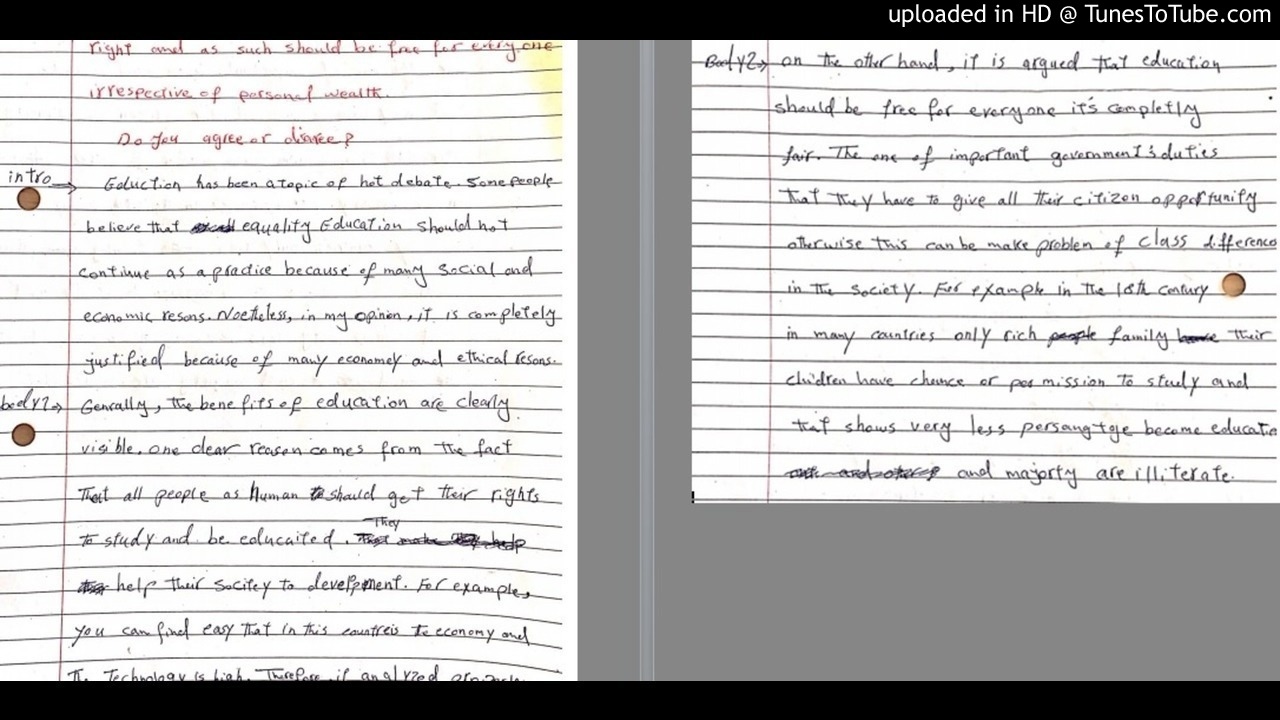 uploaded in HD @ TunesToTube.com
right and as such should be free for every one
irrespective of personal wealth.
Do you agree or disree?
intro
Eduction has been a topic of hot debate. Some people
believe that equality Education should not
continue as a practice because of many social and
economic resons. Noetheless, in my opinion, it is completely
justified because of many economey and ethical resons.
body1
Genrally, the benefits of education are clearly
visible. one clear reason comes from the fact
That all people as human should get their rights
to study and be educaited. They
help their socitey to develpment. For example,
you can find easy that in this countreis the economy and
The Technology is high. Therefore, if analyzed
Body2
on the other hand, it is argued that education
should be free for everyone it's completly
fair. The one of important government's duties
that they have to give all their citizen opportunity
otherwise this can be make problem of class difference
in the society. For example in the 18th century
in many countries only rich people family their
children have chance or posmission to study and
that shows very less persangtge become educatio
and majorty are illiterate.